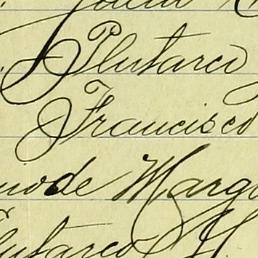 Plutarco
Francisco
de Marg
Plutarco H.